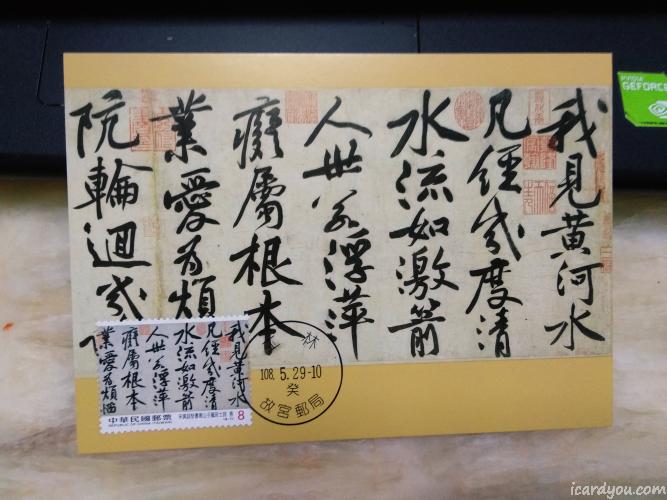 我見黃河水
凡經幾度清
水流如激箭
人世若浮萍
癡屬根本
業愛為煩
阬輪迴幾
我見黃河水
凡經幾度清
水流如激箭
人世若浮萍
癡屬根本
業愛為煩惱
中華民國郵票
REPUBLIC OF CHINA (TAIWAN)
8
108.5.29-10
癸
故宮郵局
NVIDIA
GEFORCE
icardyou.com